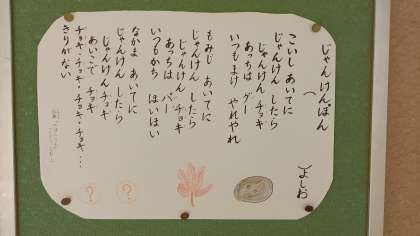 じゃんけんぽん
よしお
こいし あいてに
じゃんけん したら
じゃんけん チョキ
あっちは グー
いつもまけ やれやれ
もみじ あいてに
じゃんけん したら
じゃんけん チョキ
あっちは パー
いつもかち ほいほい
なかま あいてに
じゃんけん したら
じゃんけん チョキ
あいこで チョキ
チョキ・チョキ・チョキ・チョキ…
きりがない
?
?